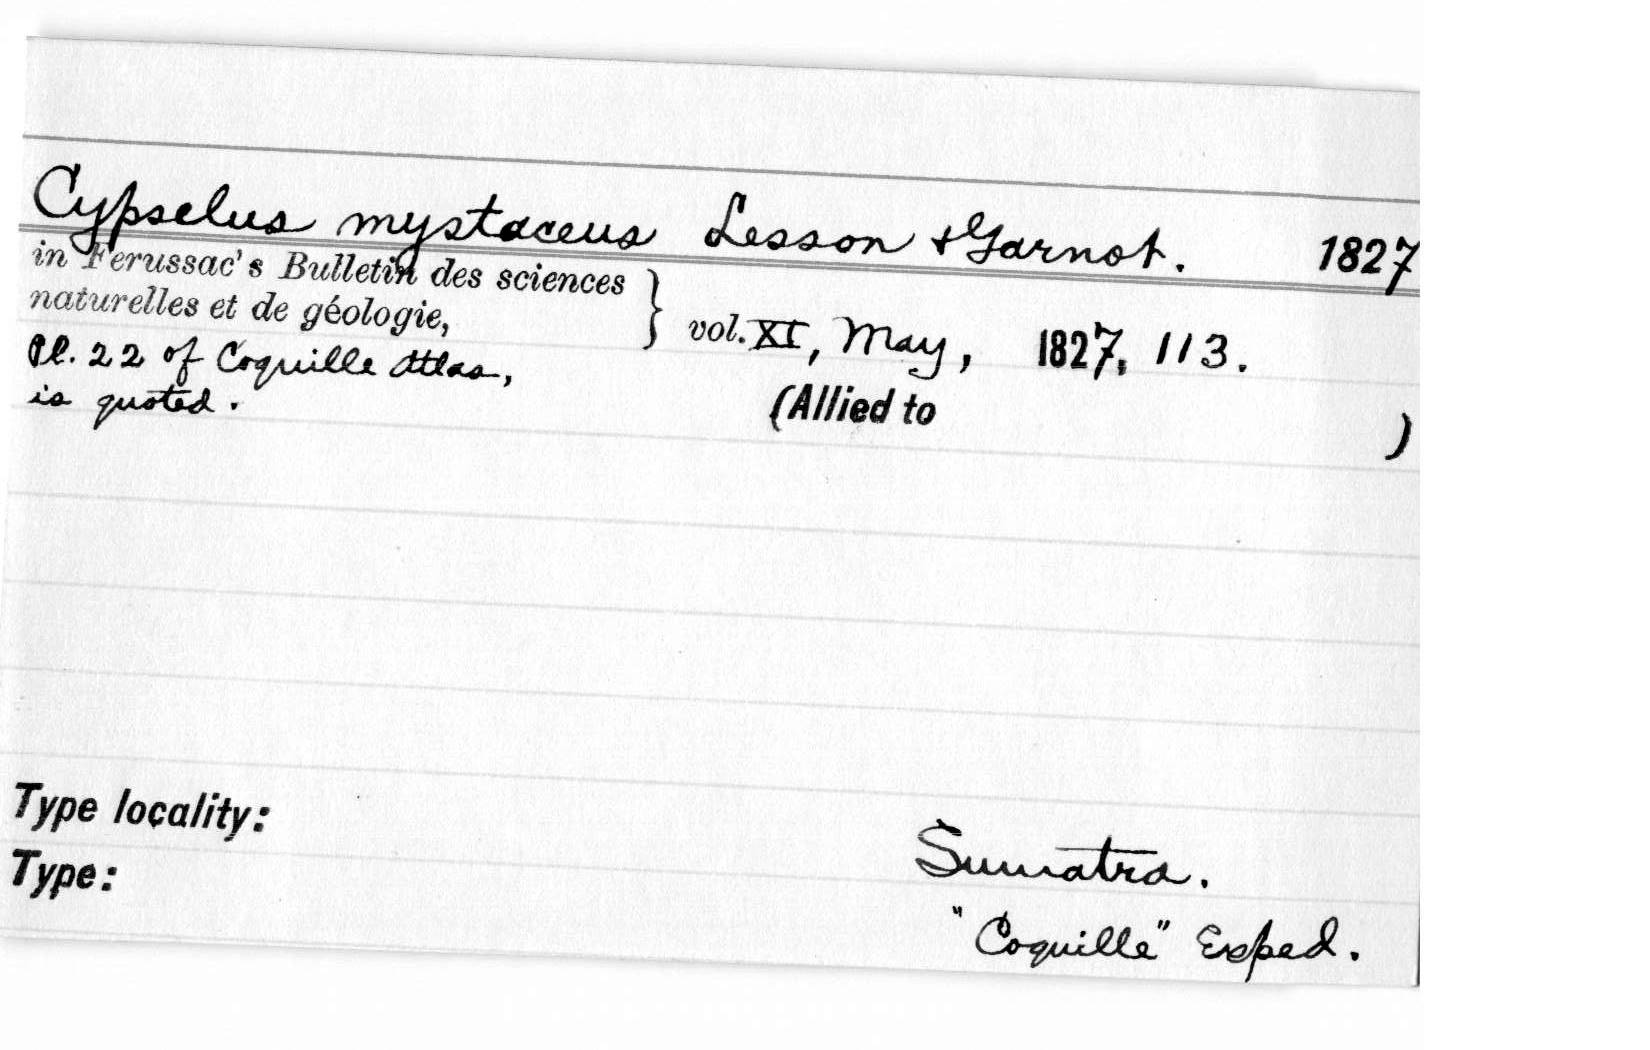 Cypselus mystaceus Lesson & Garnot. 1827
in Ferussac's Bulletin des sciences
naturelles et de géologie, } vol. XI, May, 1827, 113.
Pl. 22 of Coquille Atlas,
is quoted.
(Allied to )
Type locality: Sumatra.
Type: "Coquille" Exped.